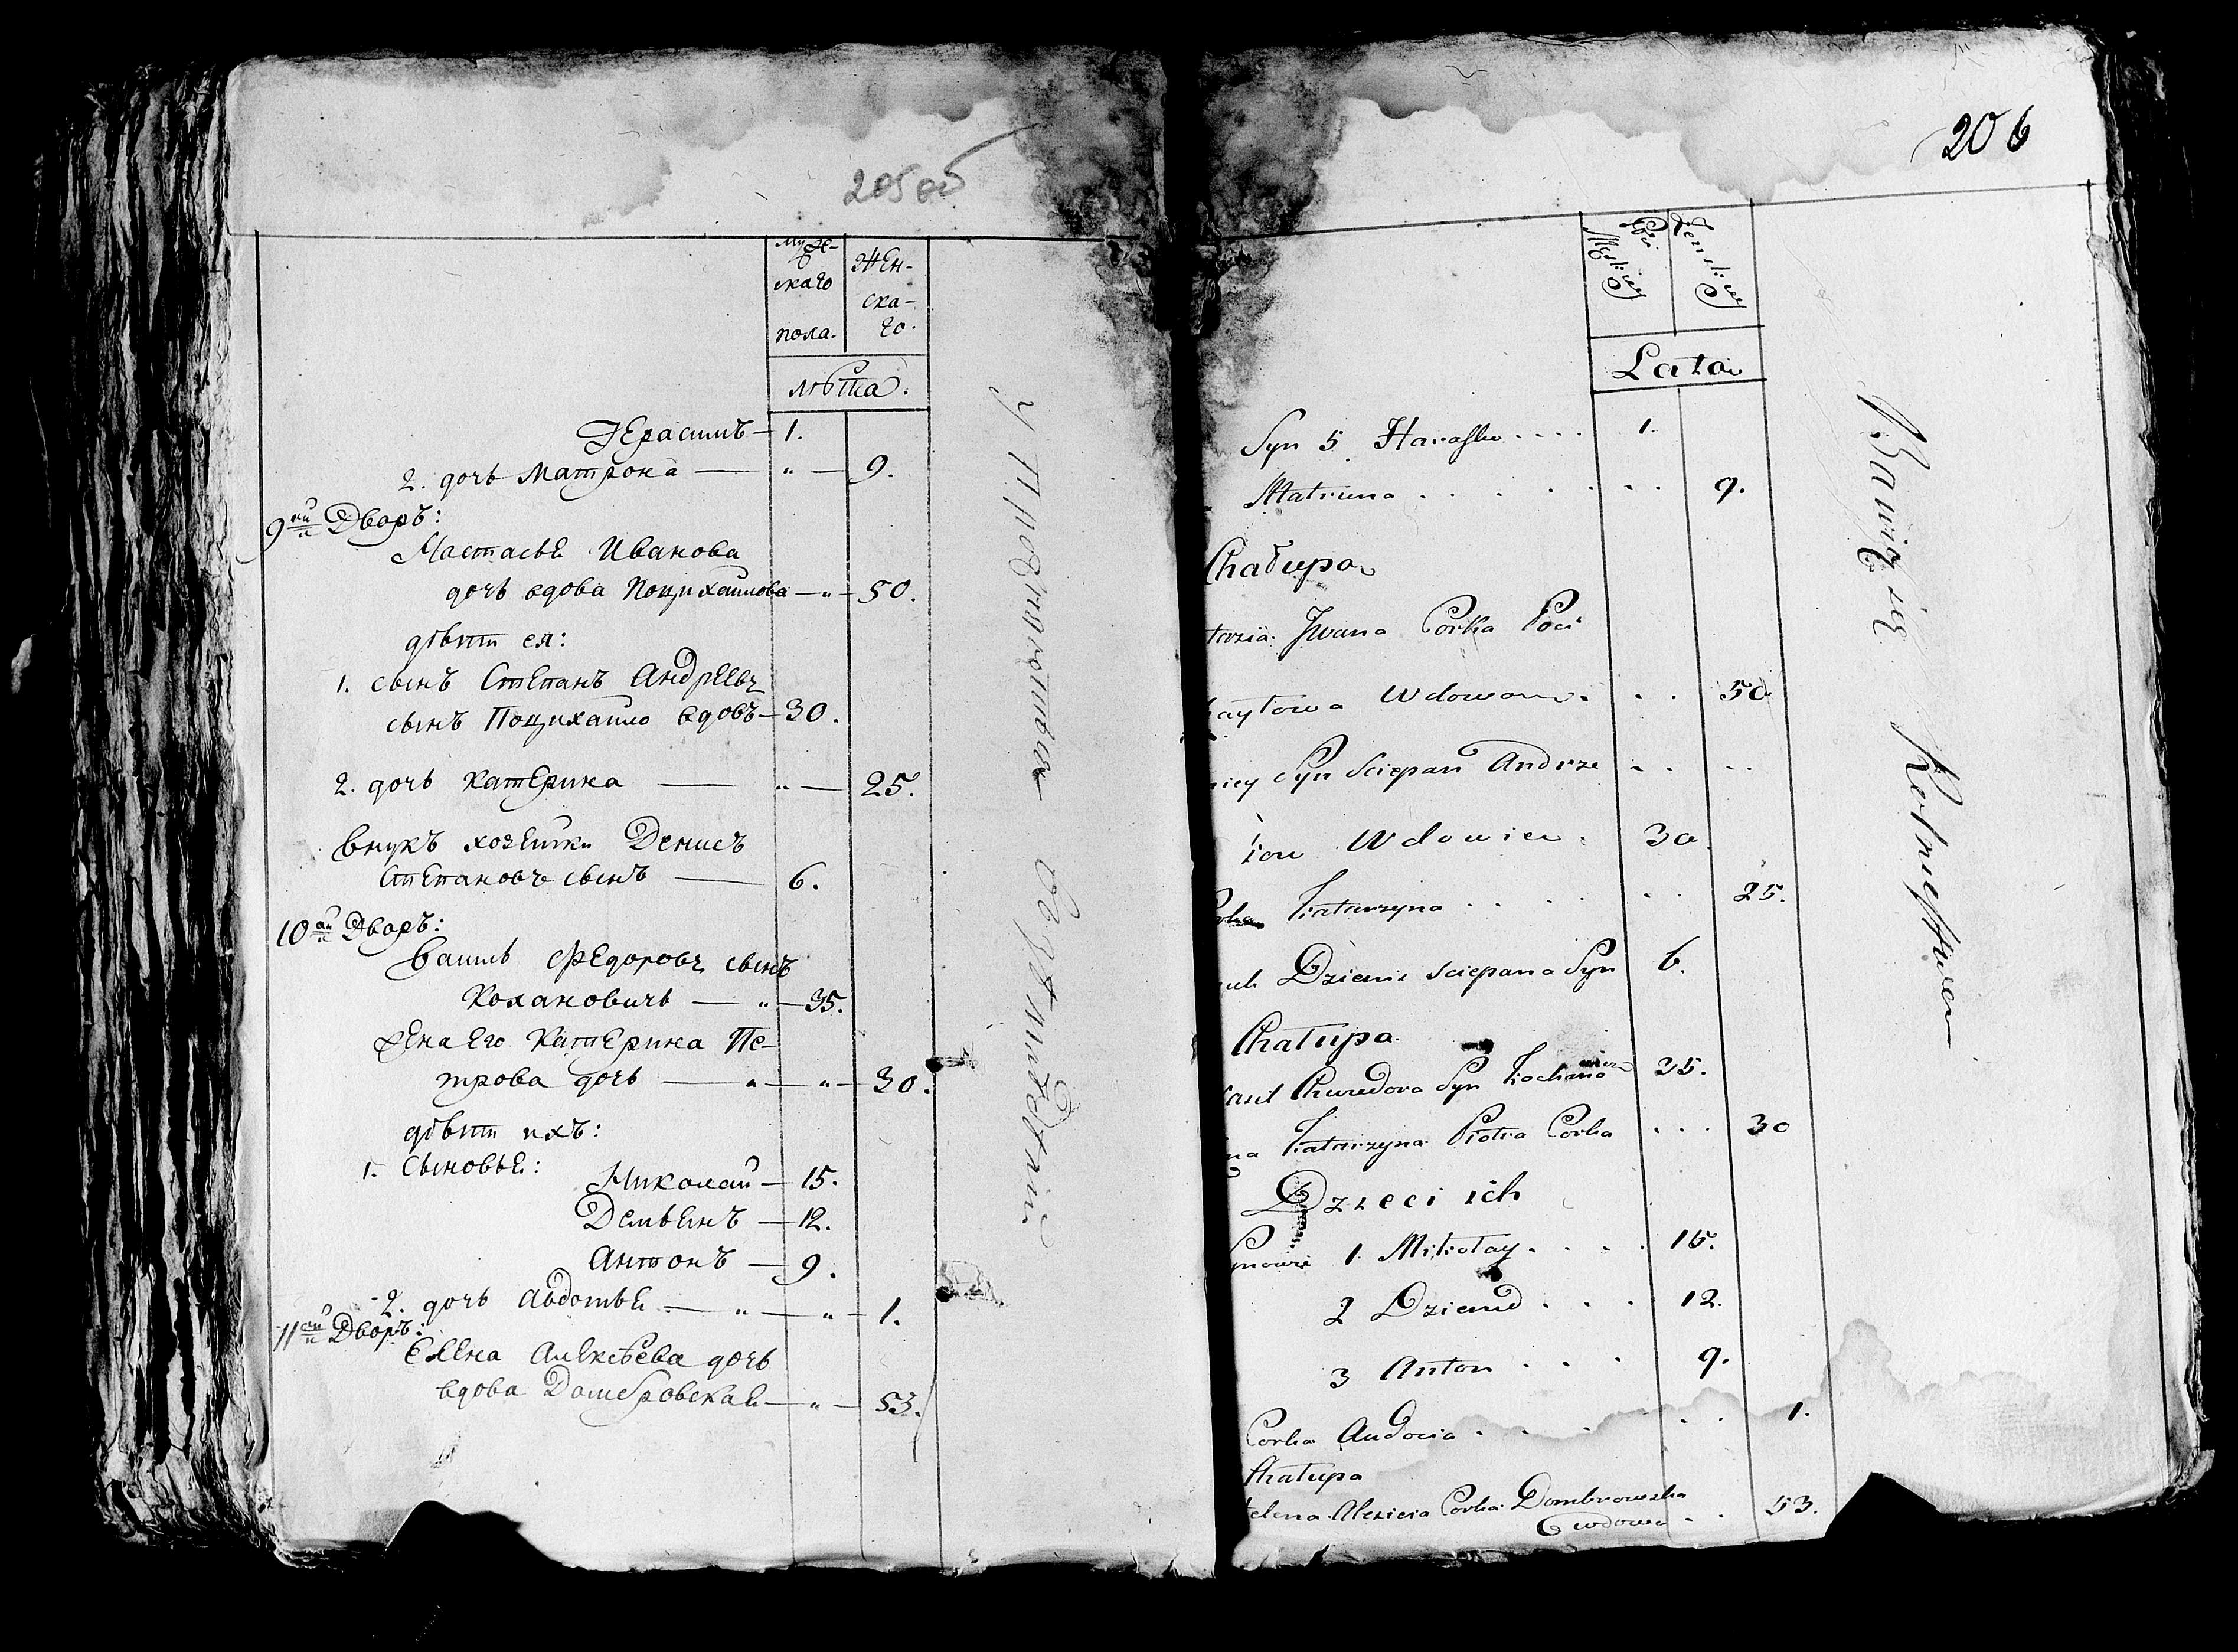 205 об
Муже-
скаго
пола.
Жен-
ска-
го.
лѣта.
Герасимъ — 1.
2. дочь Матрона — „ — 9.
9ый Дворъ:
Настасья Иванова
дочь вдова Поцихайлова — „ — 50.
дѣти ея:
1. сынъ Степанъ Андреевъ
сынъ Поцихайло вдовъ — 30.
2. дочь Катерина — „ — 25.
внукъ хозяйки Денисъ
Степановъ сынъ — 6.
10ый Дворъ:
Василь Федоровъ сынъ
Кохановичь — „ — 35.
жена Его Катерина Пе-
трова дочь — „ — „ — 30.
дѣти ихъ:
1. Сыновья:
Николай — 15.
Демьянъ — 12.
Антонъ — 9.
2. дочь Авдотья — „ — „ — 1.
11ый Дворъ:
Елена Алексѣева дочь
вдова Домбровская — „ — 53.
206
Płci
Męskiey
Żenskiey
Lata
Syn 5 Harasko .... 1.
Matruna . . . . . . . 9.
Chałupa
tazia Jwana Corka Poci
haylowa Wdowa . . . 50
niey Syn Sciepan Andrze . . . .
Wdowiec . 30.
Corka Katarzyna . . . . . . 25.
nuk Dzienis Sciepana Syn 6.
Chałupa.
asil Chwedora Syn Kochanowicz 35.
na Katarzyna Piotra Corka . . . 30
Dzieci ich
ynowie 1. Mikołay . . . . 15.
2 Dziemid . . . 12.
3 Anton . . . 9.
Corka Audocia . . . . . 1.
Chałupa
elena Alexieia Corka Dombrowska
wdowa . . 53.